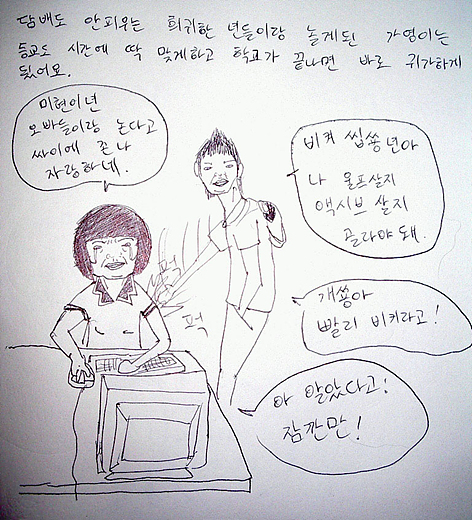 담배도 안피우는 희귀한 년들이랑 놀게된 가영이는
등교도 시간에 딱 맞게하고 학교가 끝나면 바로 귀가하게
됬어요.
미현이년
오빠들이랑 논다고
싸이에 존나
자랑하네.
비켜 씹쑝년아
나 울프살지
액시브 살지
골라야 돼.
퍽
퍽
개쑝아
빨리 비키라고!
아 알았다고!
잠깐만!